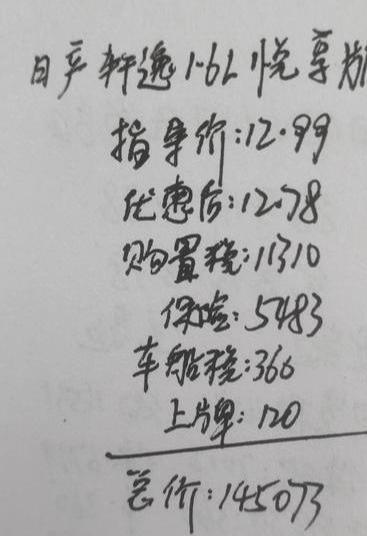 日产轩逸1.6L悦享版
指导价:12.99
优惠后:12.78
购置税:11310
保险:5483
车船税:360
上牌:120
总价:145073